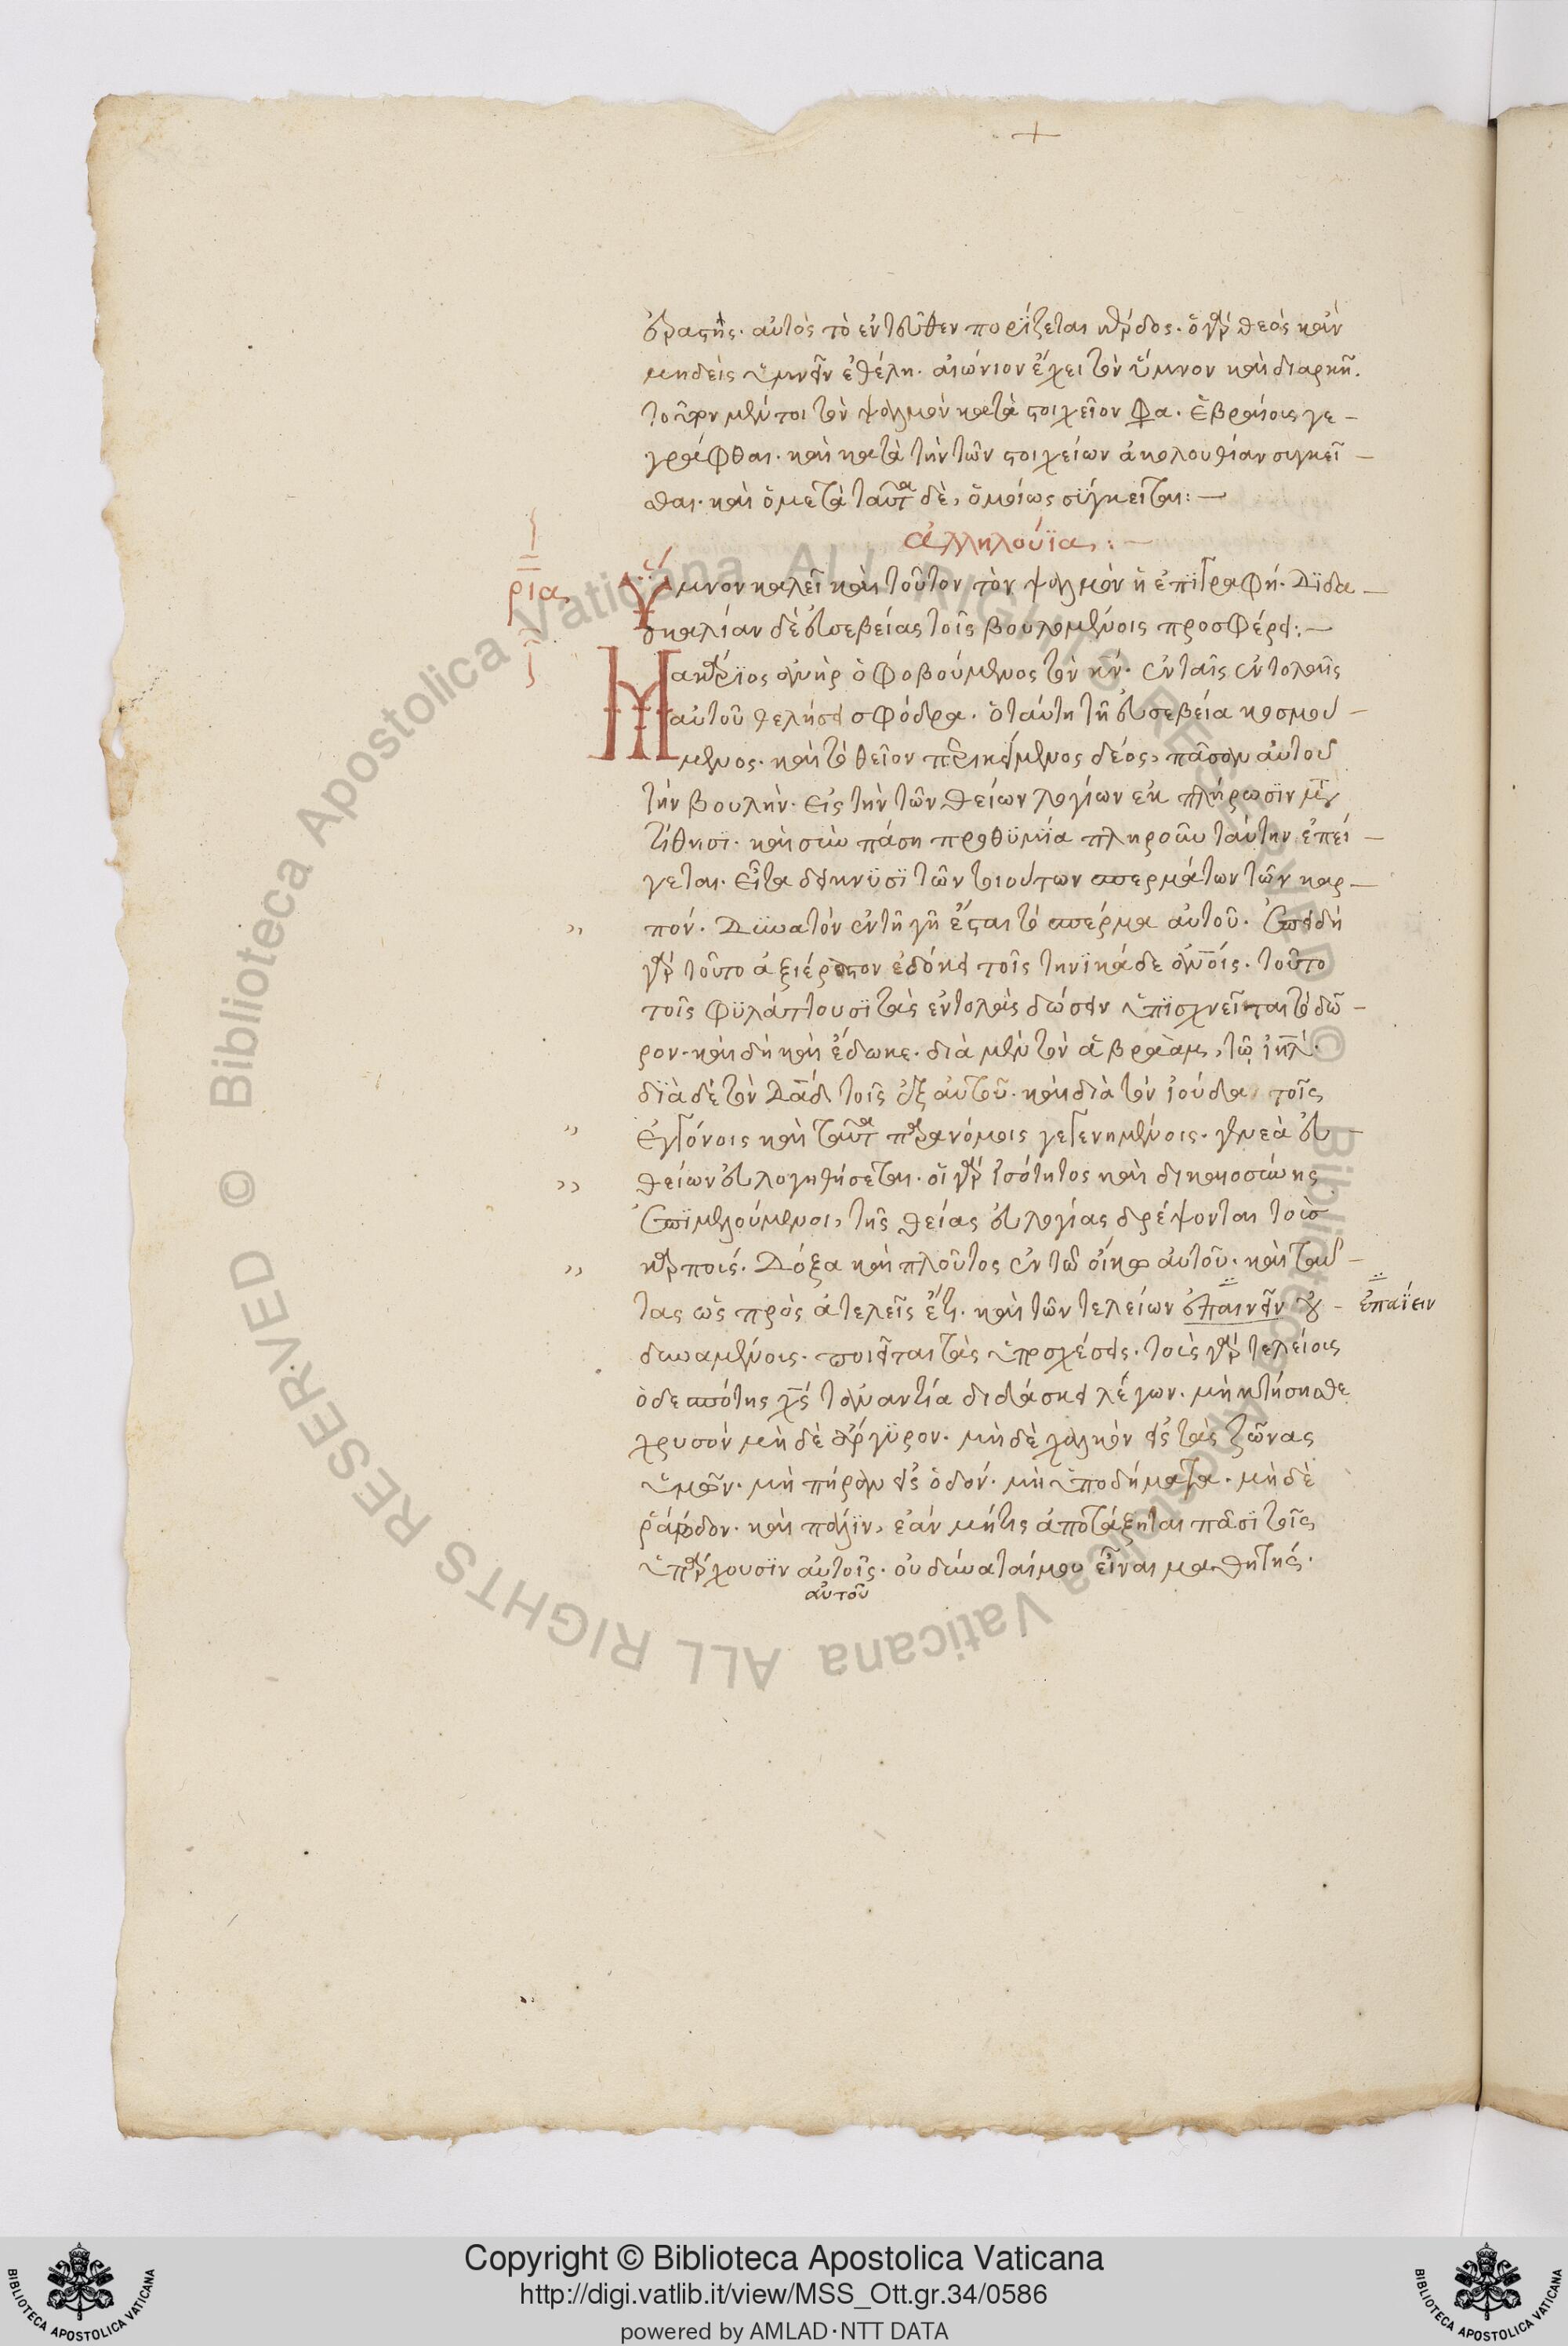 ἐραστής. αὐτὸς τὸ ἐντεῦθεν πορίζεται κέρδος. ὁ γὰρ θεὸς κἂν
μηδεὶς ὑμνεῖν ἐθέλη. αἰώνιον ἔχει τὸν ὕμνον καὶ διαρκῆ.
τοῦτον μέντοι τὸν ψαλμὸν κατὰ στοιχεῖον φα. ἑβραίοις γε-
γράφθαι. καὶ κατὰ τὴν τῶν στοιχείων ἀκολουθίαν συγκεῖ-
σθαι. καὶ ὁ μετὰ ταῦτα δὲ, ὁμοίως σύγκειται:-
ἀλληλούϊα:-
ρια
Ὕμνον καλεῖ καὶ τοῦτον τὸν ψαλμὸν ἡ ἐπιγραφή. διδα-
σκαλίαν δὲ εὐσεβείας τοῖς βουλομένοις προσφέρει:-
Μακάριος ἀνὴρ ὁ φοβούμενος τὸν κν. ἐν ταῖς ἐντολαῖς
αὐτοῦ θελήσει σφόδρα. ὁ ταύτη τῆ εὐσεβεία κοσμού-
μενος. καὶ τὸ θεῖον περικείμενος δέος, πᾶσαν αὐτοῦ
τὴν βουλὴν. εἰς τὴν τῶν θείων λογίων ἐκπλήρωσιν μετα
τίθησι. καὶ σὺν πάση προθυμία πληροῦν ταύτην ἐπεί-
γεται. εἶτα δείκνυσι τῶν τοιούτων σπερμάτων τῶν καρ-
" πόν. δυνατὸν ἐν τῆ γῆ ἔσται τὸ σπέρμα αὐτοῦ. ἐπειδὴ
γὰρ τοῦτο ἀξιέραστον ἐδόκει τοῖς τηνικάδε ἀνοις. τοῦτο
τοῖς φυλάττουσι τὰς ἐντολὰς δώσειν ὑπισχνεῖται τὸ δῶ-
ρον. καὶ δὴ καὶ ἔδωκε. διὰ μὲν τὸν ἀβραὰμ, τῶ ιηλ.
διὰ δὲ τὸν δαδ τοῖς ἐξ αὐτοῦ. καὶ διὰ τὸν ἰούδα τοῖς
" ἐγγόνοις καὶ ταῦτα παρανόμοις γεγενημένοις. γενεὰ εὐ-
" θείων εὐλογηθήσεται. οἱ γὰρ ἰσότητος καὶ δικαιοσύνης
ἐπιμελούμενοι, τῆς θείας εὐλογίας δρέψονται τοὺς
" καρπούς. δόξα καὶ πλοῦτος ἐν τῶ οἴκω αὐτοῦ. καὶ ταύ-
τας ὡς πρὸς ἀτελεῖς ἔτι. καὶ τῶν τελείων ἐπαινεῖν οὐ - ἐπαΐειν
δυναμένοις. ποιεῖται τὰς ὑποσχέσεις. τοῖς γὰρ τελείοις
ὁ δεσπότης χς τἀναντία διδάσκει λέγων. μὴ κτήσησθε
χρυσὸν μὴ δὲ ἄργυρον. μὴ δὲ χαλκὸν εἰς τὰς ζῶνας
ὑμῶν. μὴ πήραν εἰς ὁδόν. μὴ ὑποδήματα. μὴ δὲ
ῥάβδον. καὶ πάλιν, ἐὰν μήτις ἀποτάξηται πᾶσι τοῖς
ὑπάρχουσιν αὐτοῖς. οὐ δύναταί μου εἶναι μαθητής.
αὐτοῦ
Copyright © Biblioteca Apostolica Vaticana
http://digi.vatlib.it/view/MSS_Ott.gr.34/0586
powered by AMLAD·NTT DATA